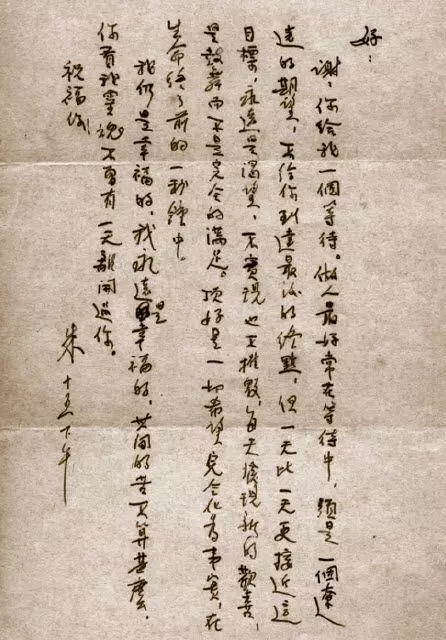 好：
謝謝你給我一個等待。做人最好常在等待中，須是一個遼
遠的期望，不給你到達最後的終點，但一天比一天更接近這
目標，永遠是渴望，不實現也不摧毀，每天發現新的歡喜，
是鼓舞而不是完全的滿足。頂好是一切希望完全化為事實，在
生命終了前的一秒鐘中。
我仍是幸福的，我永遠是幸福的，世間的苦不算甚麼，
你看我靈魂不曾有一天離開過你。
祝福你
朱 十五下午